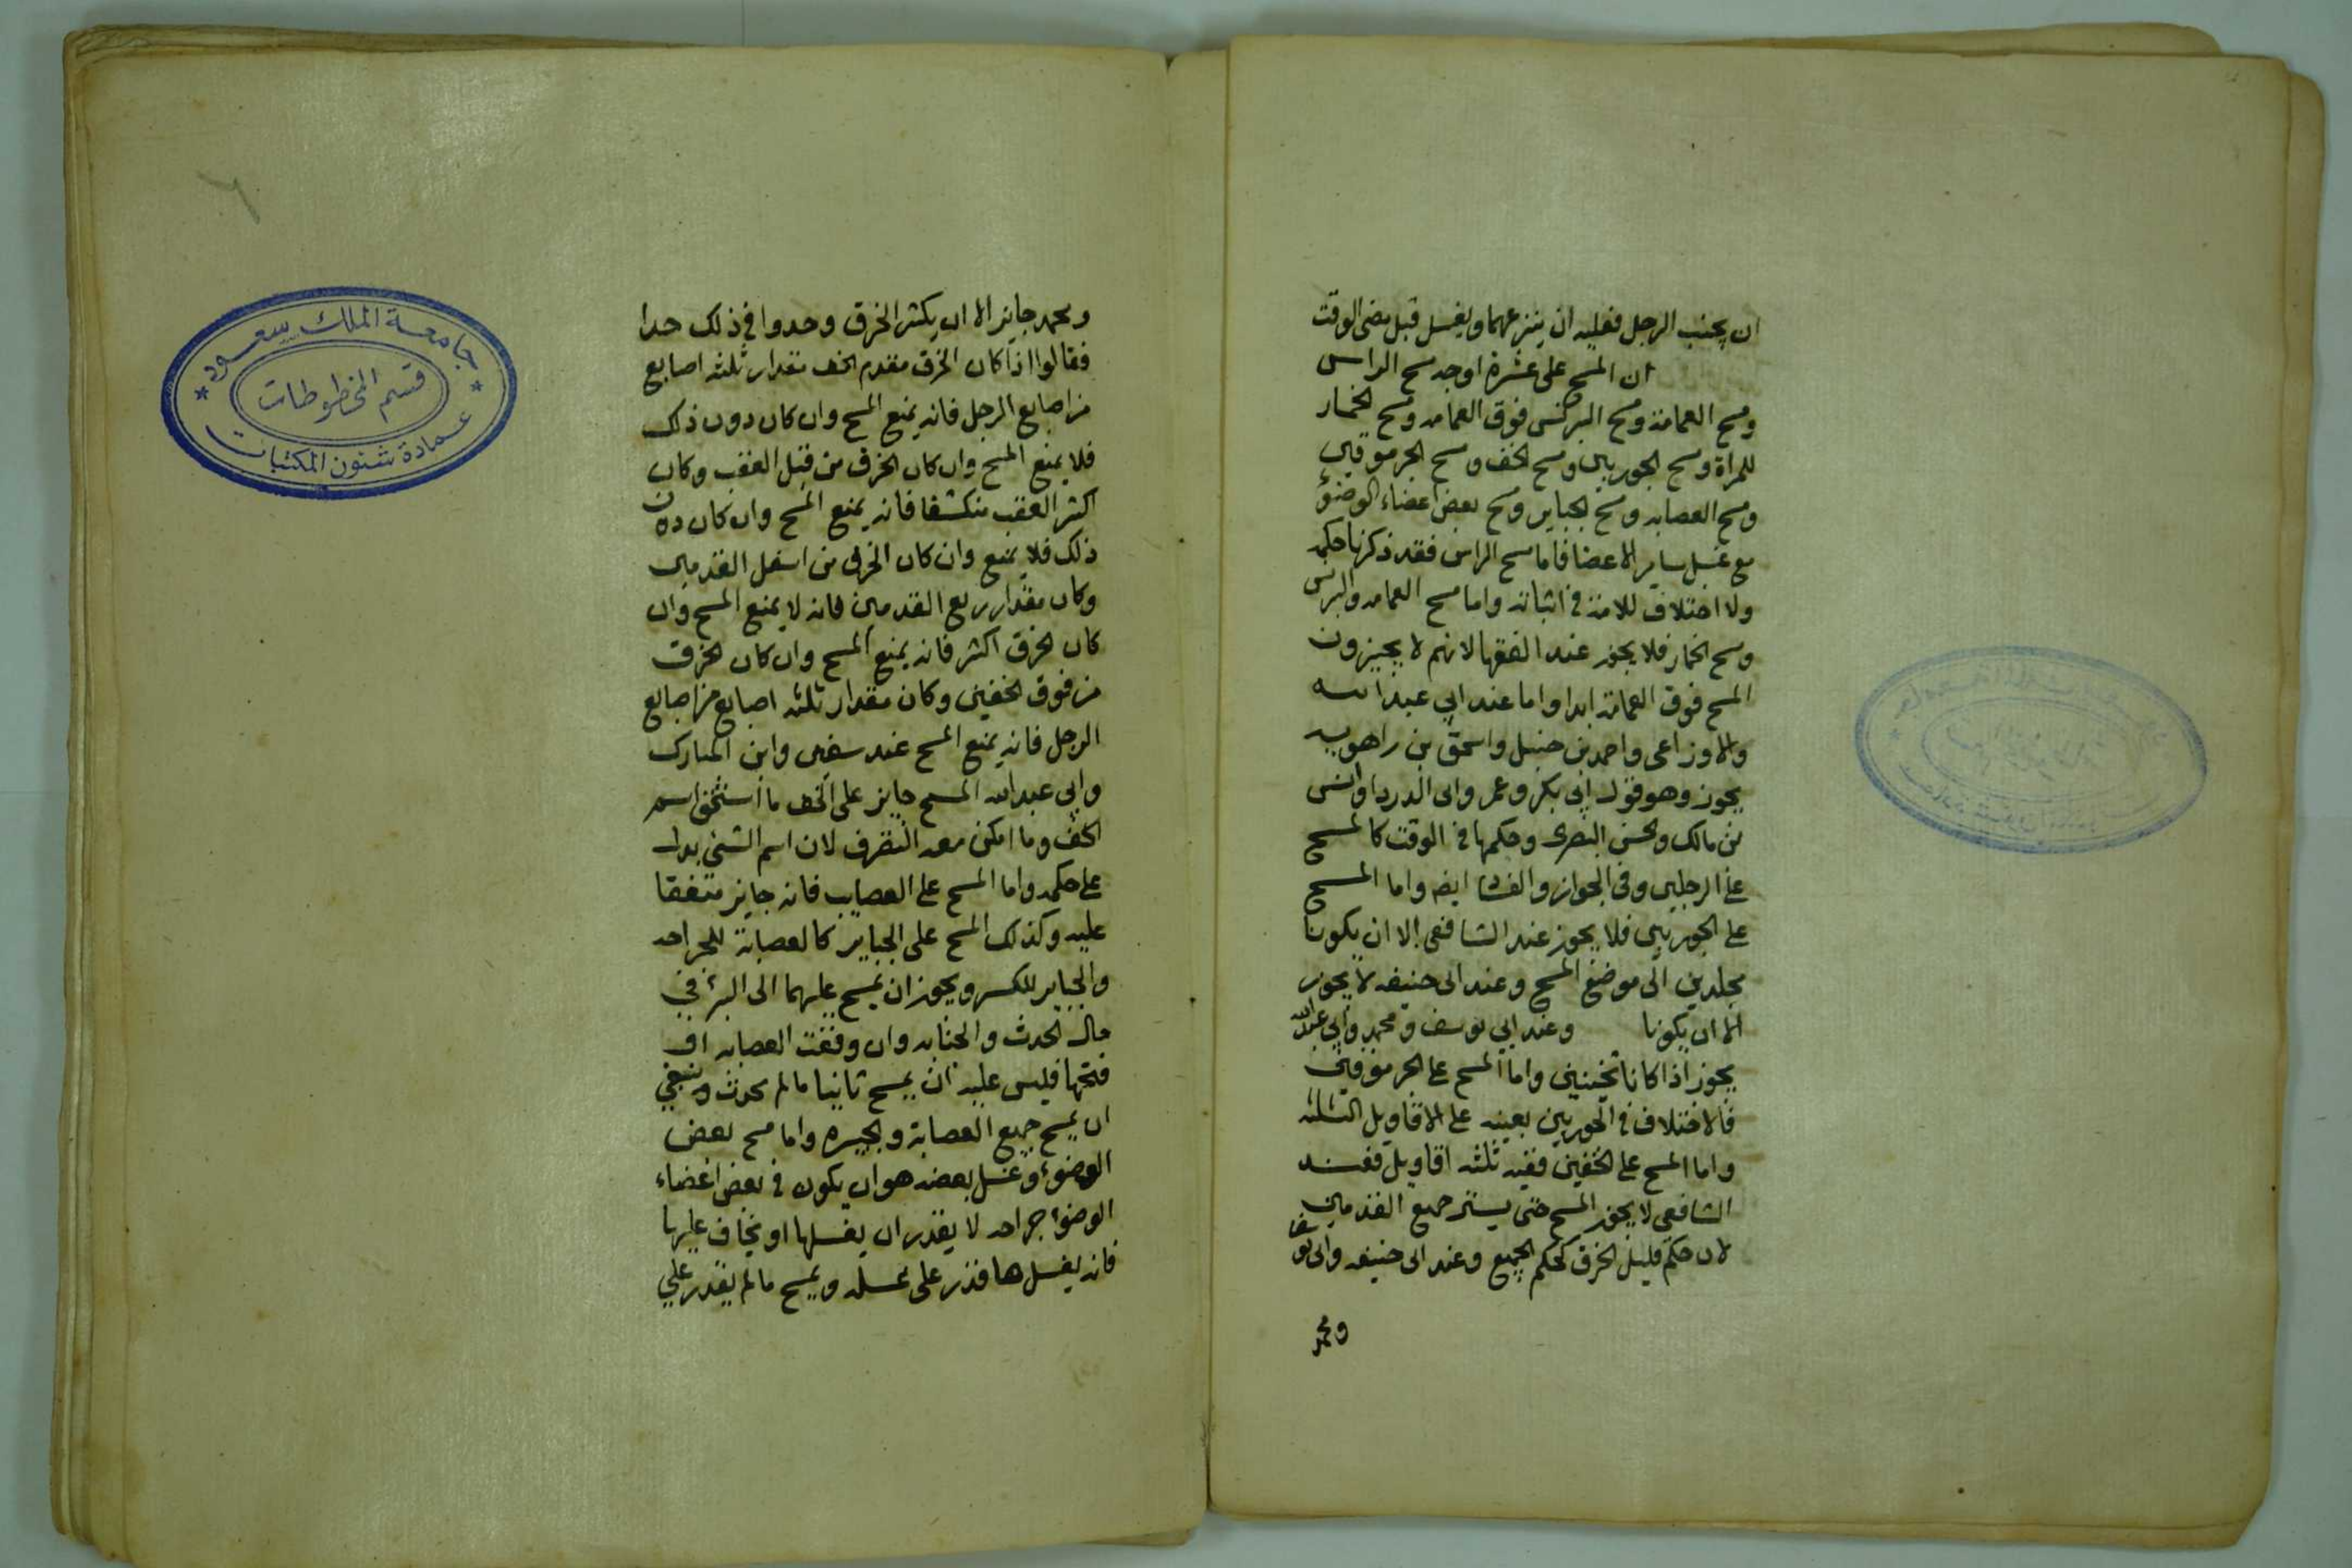 ان يجنب الرجل فعليه ان ينزعهما ويغسل قبل مضى الوقت
ان المسح على عشرة اوجه مسح الراس
ومسح العمامة ومسح البرنس فوق العمامه ومسح الخمار
للمراة ومسح الجوربين ومسح الخف ومسح الجرموقين
ومسح العصابه ومسح الجباير ومسح بعض اعضاء الوضوء
مع غسل ساير الاعضا فاما مسح الراس فقد ذكرنا حكمه
ولا اختلاف للامة في اثباته واما مسح العمامه والبرنس
ومسح الخمار فلا يجوز عند الفقها لانهم لا يجيزون
المسح فوق العمامة ابدا واما عند ابي عبد الله
والاوزاعى واحمد بن حنبل واسحق بن راهويه
يجوز وهو قول ابي بكر وعمر وابى الدردا وانس
بن مالك والحسن البصرى وحكمها في الوقت كالمسح
على الرجلين وفي الجواز والفساد ايضا واما المسح
على الجوربين فلا يجوز عند الشافعى الا ان يكونا
مجلدين الى موضع المسح وعند ابى حنيفه لا يجوز
الا ان يكونا وعند ابي يوسف ومحمد وابي عبد الله
يجوز اذا كانا ثخينين واما المسح على الجرموقين
فالاختلاف في الجوربين بعينه على الاقاويل الثلثه
واما المسح على الخفين ففيه ثلثه اقاويل فعند
الشافعى لا يجوز المسح حتى يستر جميع القدمين
لان حكم قليل الخرق كحكم الجميع وعند ابى حنيفه وابى يوسف
ومحمد
٦
ومحمد جايز الا ان يكثر الخرق وحدوا في ذلك حدا
فقالوا اذا كان الخرق مقدم الخف مقدار ثلثه اصابع
من اصابع الرجل فانه يمنع المسح وان كان دون ذلك
فلا يمنع المسح وان كان الخرق من قبل العقب وكان
اكثر العقب منكشفا فانه يمنع المسح وان كان دون
ذلك فلا يمنع وان كان الخرق من اسفل القدمين
وكان مقدار ربع القدمين فانه لا يمنع المسح وان
كان الخرق اكثر فانه يمنع المسح وان كان الخرق
من فوق الخفين وكان مقدار ثلثه اصابع من اصابع
الرجل فانه يمنع المسح عند سفين وابن المبارك
وابي عبد الله المسح جايز على الخف ما استحق اسم
الخف وما امكن معه التصرف لان اسم الشئ يدل
على حكمه واما المسح على العصايب فانه جايز متفقا
عليه وكذلك المسح على الجباير كالعصابة للجراحه
والجباير للكسر ويجوز ان يمسح عليهما الى البرء في
حال الحدث والجنابه وان وقعت العصابه او
فتحها فليس عليه ان يمسح ثانيا ما لم يحدث وينبغي
ان يمسح جميع العصابة والجبيره واما مسح بعض
الوضوء وغسل بعضه هو ان يكون في بعض اعضاء
الوضوء جراحه لا يقدر ان يغسلها او يخاف عليها
فانه يغسل ما قدر على غسله ويمسح ما لم يقدر على
جامعة الملك سعود
قسم المخطوطات
عمادة شئون المكتبات